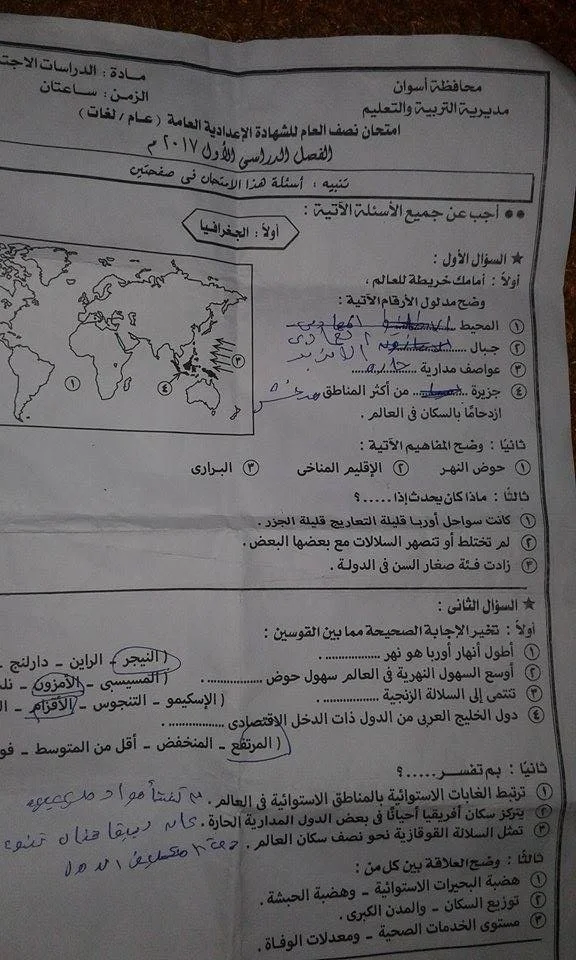 محافظة أسوان
مديرية التربية والتعليم
مادة : الدراسات الاجت
الزمن : ساعتان
امتحان نصف العام للشهادة الإعدادية العامة ( عام / لغات )
الفصل الدراسي الأول ٢٠١٧ م
تنبيه : أسئلة هذا الامتحان فى صفحتين
●● أجب عن جميع الأسئلة الآتية :
أولاً : الجغرافيا
★ السؤال الأول :
أولاً : أمامك خريطة للعالم ،
وضح مدلول الأرقام الآتية :
① المحيط
② جبال ............
③ عواصف مدارية ............
④ جزيرة ............ من أكثر المناطق
ازدحامًا بالسكان فى العالم .
① ③ ④
ثانيًا : وضح المفاهيم الآتية :
① حوض النهر ② الإقليم المناخى ③ البرارى
ثالثًا : ماذا كان يحدث إذا .....؟
① كانت سواحل أوربا قليلة التعاريج قليلة الجزر .
② لم تختلط أو تنصهر السلالات مع بعضها البعض .
③ زادت فئة صغار السن فى الدولة .
★ السؤال الثانى :
أولاً : تخير الإجابة الصحيحة مما بين القوسين :
① أطول أنهار أوربا هو نهر ............... . ( النيجر ـ الراين ـ دارلنج ـ
② أوسع السهول النهرية فى العالم سهول حوض ............... . ( المسيسبى ـ الأمزون ـ
③ تنتمى إلى السلالة الزنجية ............... . ( الإسكيمو ـ التنجوس ـ الأقزام ـ
④ دول الخليج العربى من الدول ذات الدخل الاقتصادى ............... .
( المرتفع ـ المنخفض ـ أقل من المتوسط ـ
ثانيًا : بم تفسر .....؟
① ترتبط الغابات الاستوائية بالمناطق الاستوائية فى العالم .
② يتركز سكان أفريقيا أحيانًا فى بعض الدول المدارية الحارة .
③ تمثل السلالة القوقازية نحو نصف سكان العالم .
ثالثًا : وضح العلاقة بين كل من :
① هضبة البحيرات الاستوائية ـ وهضبة الحبشة .
② توزيع السكان ـ والمدن الكبرى .
③ مستوى الخدمات الصحية ـ ومعدلات الوفاة .